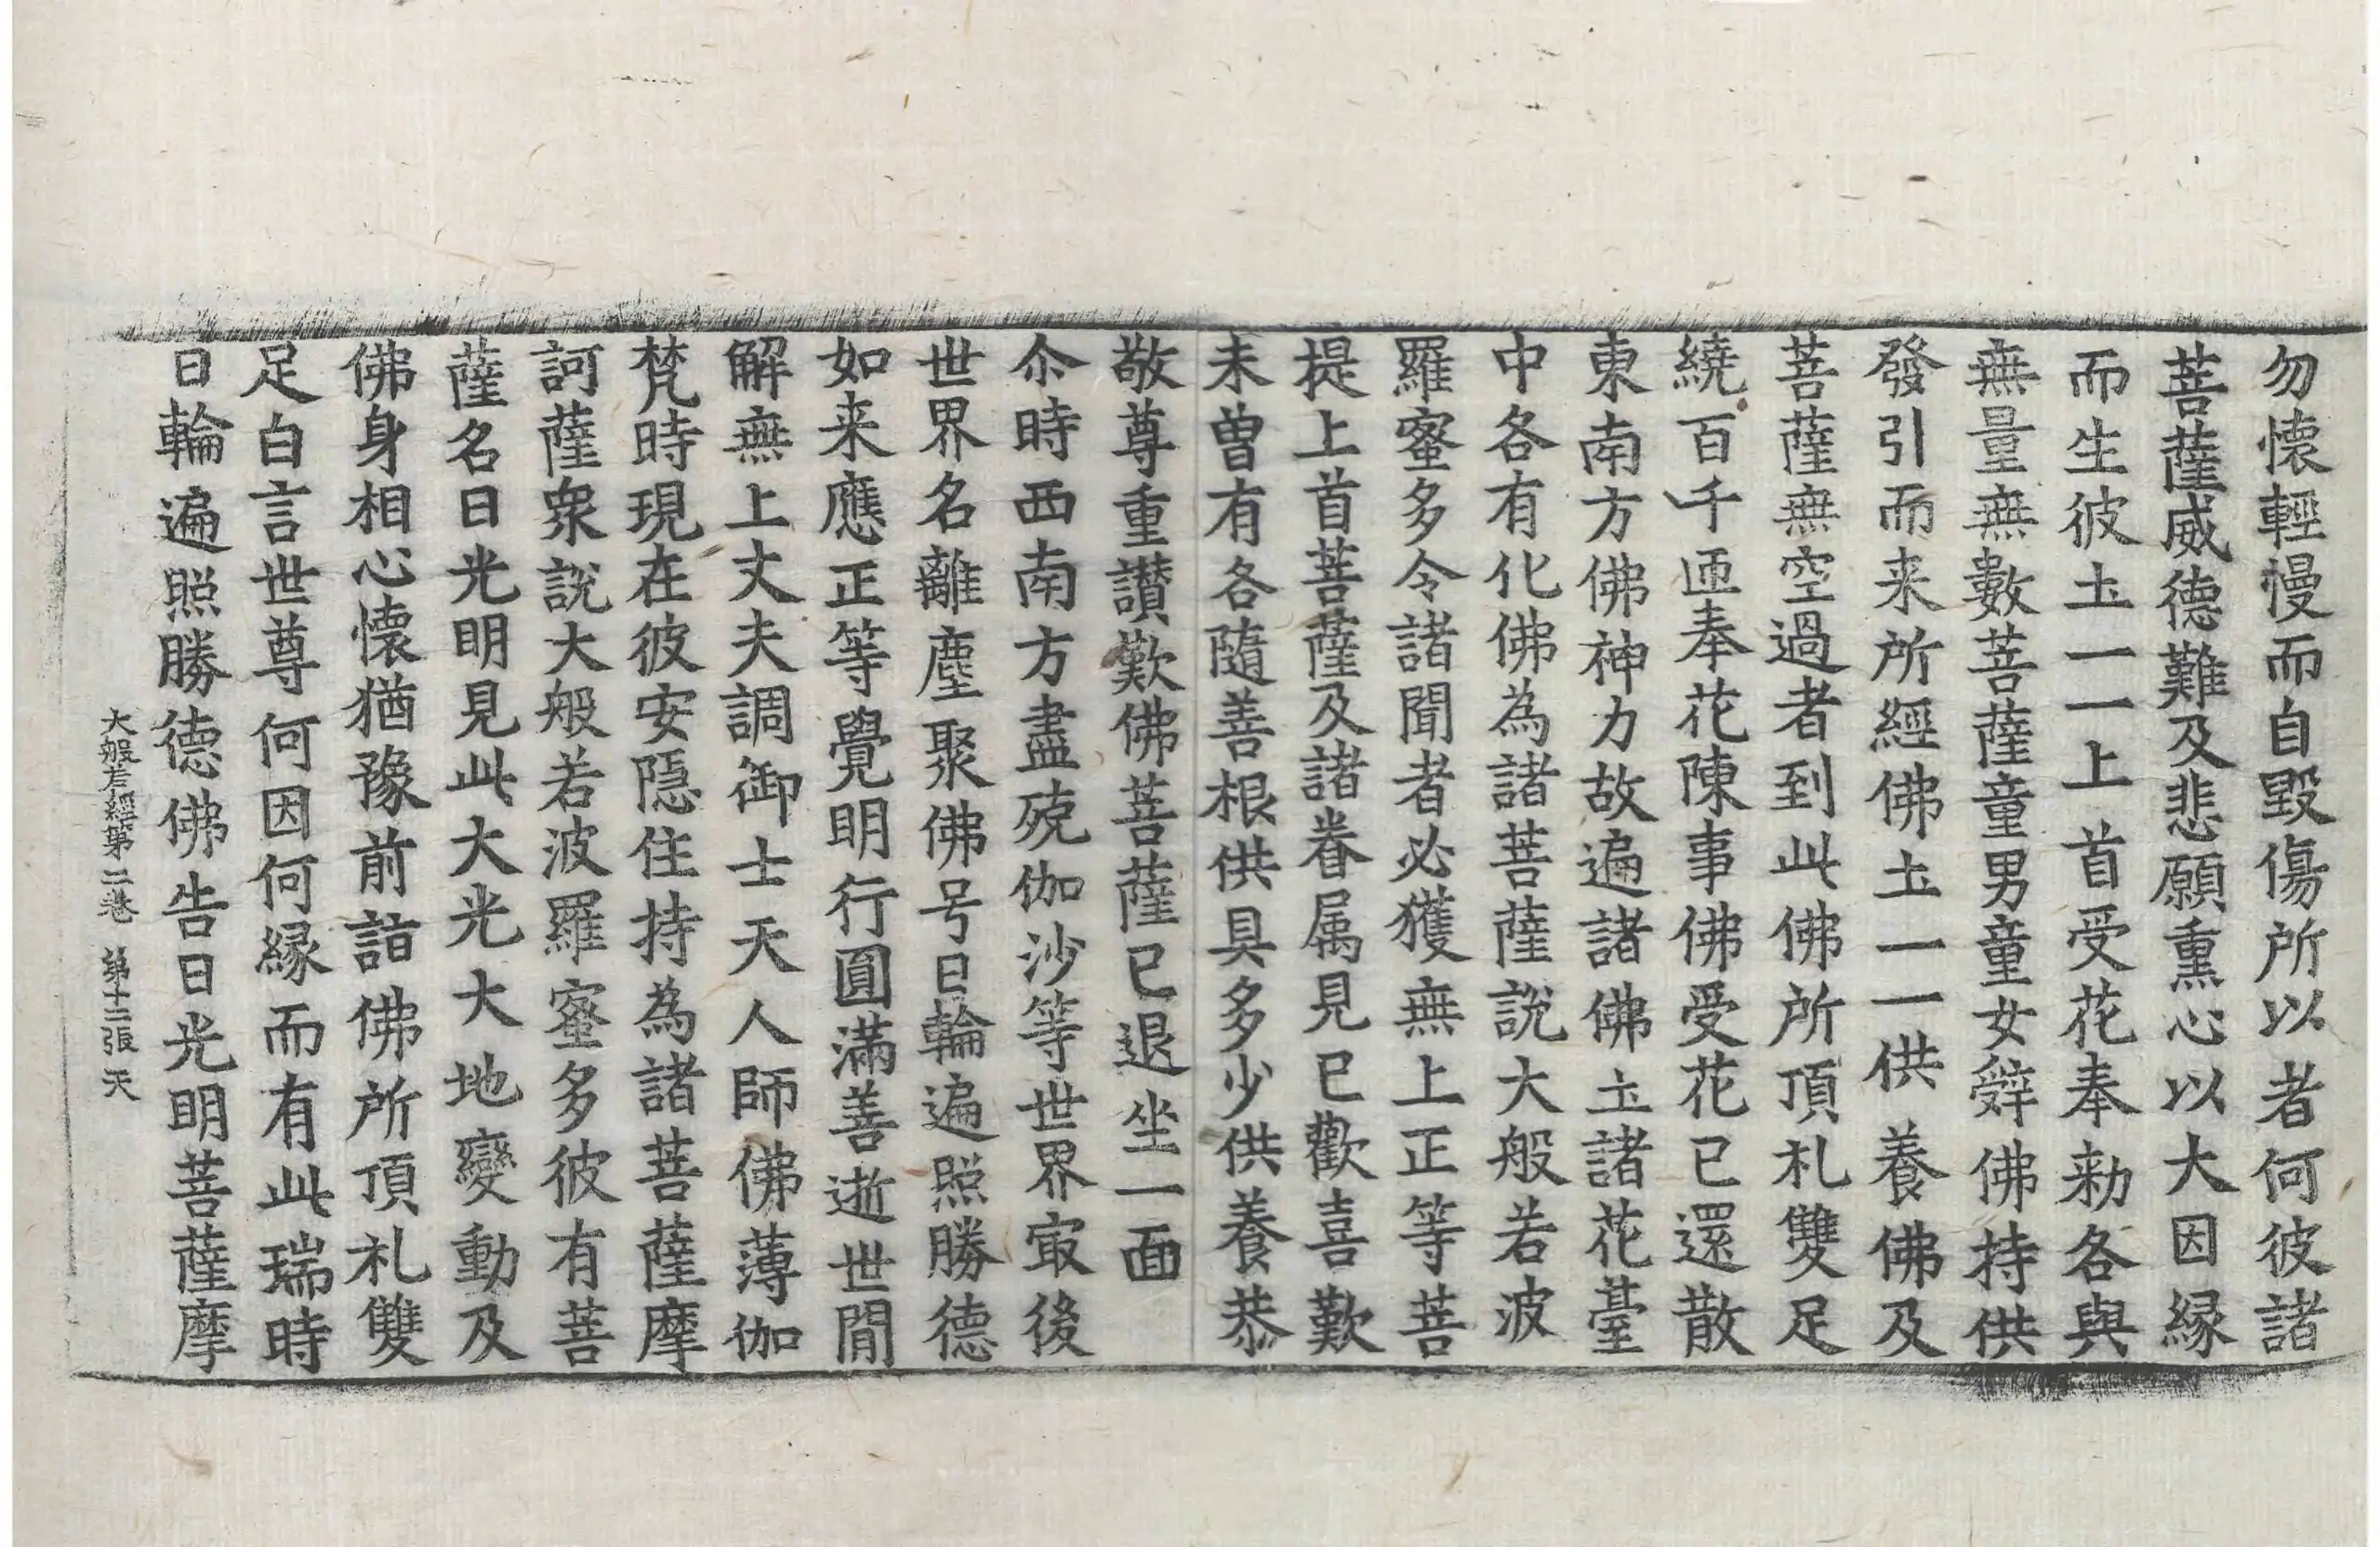 勿懷輕慢而自毀傷所以者何彼諸
菩薩威德難及悲願熏心以大因緣
而生彼土一一上首受花奉勅各與
無量無數菩薩童男童女辤佛持供
發引而来所經佛土一一供養佛及
菩薩無空過者到此佛所頂礼雙足
繞百千匝奉花陳事佛受花已還散
東南方佛神力故遍諸佛土諸花臺
中各有化佛為諸菩薩說大般若波
羅蜜多令諸聞者必獲無上正等菩
提上首菩薩及諸眷属見已歡喜歎
未曾有各隨善根供具多少供養恭
敬尊重讃歎佛菩薩已退坐一面
尒時西南方盡殑伽沙等世界㝡後
世界名離塵聚佛号日輪遍照勝德
如来應正等覺明行圓滿善逝世間
解無上丈夫調御士天人師佛薄伽
梵時現在彼安隱住持為諸菩薩摩
訶薩衆說大般若波羅蜜多彼有菩
薩名日光明見此大光大地變動及
佛身相心懷猶豫前詣佛所頂礼雙
足白言世尊何因何緣而有此瑞時
日輪遍照勝德佛告日光明菩薩摩
大般若經第二卷 第十二張 天